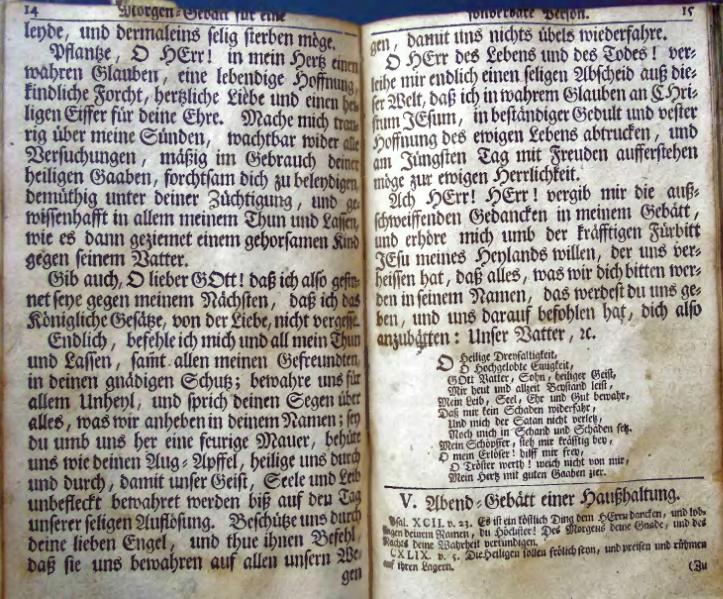 14 Morgen-Gebätt für eine
leyde, und dermaleins selig sterben möge.
Pflantze, O HErr! in mein Hertz einen
wahren Glauben, eine lebendige Hoffnung,
kindliche Forcht, hertzliche Liebe und einen hei-
ligen Eiffer für deine Ehre. Mache mich trau-
rig über meine Sünden, wachtbar wider alle
Versuchungen, mäßig im Gebrauch deiner
heiligen Gaaben, forchtsam dich zu beleydigen,
demüthig unter deiner Züchtigung, und ge-
wissenhafft in allem meinem Thun und Lassen,
wie es dann geziemet einem gehorsamen Kind
gegen seinem Vatter.
Gib auch, O lieber GOtt! daß ich also gesin-
net seye gegen meinem Nächsten, daß ich das
Königliche Gesätze, von der Liebe, nicht vergesse.
Endlich, befehle ich mich und all mein Thun
und Lassen, sam̃t allen meinen Gefreundten,
in deinen gnädigen Schutz; bewahre uns für
allem Unheyl, und sprich deinen Segen über
alles, was wir anheben in deinem Namen; sey
du umb uns her eine feurige Mauer, behüte
uns wie deinen Aug-Apffel, heilige uns durch
und durch, damit unser Geist, Seele und Leib
unbefleckt bewahret werden biß auf den Tag
unserer seligen Auflösung. Beschütze uns durch
deine lieben Engel, und thue ihnen Befehl,
daß sie uns bewahren auf allen unsern We-
gen
sonderbare Person. 15
gen, damit uns nichts übels wiederfahre.
O HErr des Lebens und des Todes! ver-
leihe mir endlich einen seligen Abscheid auß die-
ser Welt, daß ich in wahrem Glauben an CHri-
stum JEsum, in beständiger Gedult und vester
Hoffnung des ewigen Lebens abtrucken, und
am Jüngsten Tag mit Freuden aufferstehen
möge zur ewigen Herrlichkeit.
Ach HErr! HErr! vergib mir die auß-
schweiffenden Gedancken in meinem Gebätt,
und erhöre mich umb der kräfftigen Fürbitt
JEsu meines Heylands willen, der uns ver-
heissen hat, daß alles, was wir dich bitten wer-
den in seinem Namen, das werdest du uns ge-
ben, und uns darauf befohlen hat, dich also
anzubätten: Unser Vatter, ꝛc.
O Heilige Dreyfaltigkeit,
O Hochgelobte Einigkeit,
GOtt Vatter, Sohn, heiliger Geist,
Mir heut und allzeit Beystand leist,
Mein Leib, Seel, Ehr und Gut bewahr,
Daß mir kein Schaden widerfahr,
Und mich der Satan nicht verletz,
Noch mich in Schand und Schaden setz.
Mein Schöpffer, steh mir kräfftig bey,
O mein Erlöser! hilff mir frey,
O Tröster werth! weich nicht von mir,
Mein Hertz mit guten Gaaben zier.
V. Abend-Gebätt einer Haußhaltung.
Psal. XCII. v. 23. Es ist ein köstlich Ding dem HErrn dancken, und lob-
singen deinem Namen, du Höchster! Des Morgens deine Gnade, und des
Nachts deine Wahrheit verkündigen.
CXLIX. v. 5. Die Heiligen sollen frölich seyn, und preisen und rühmen
auf ihren Lagern.
(Zu